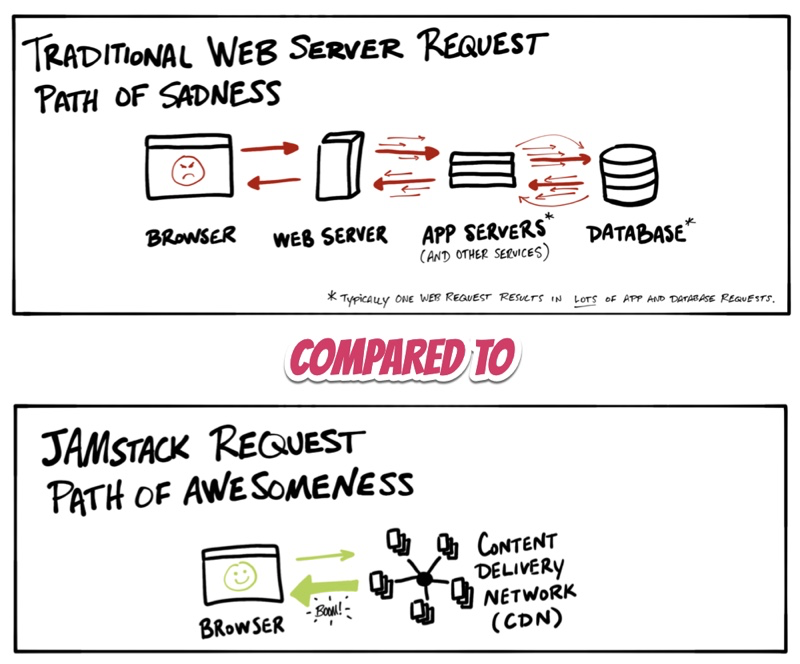 TRADITIONAL WEB SERVER REQUEST
PATH OF SADNESS
BROWSER
WEB SERVER
APP SERVERS*
(AND OTHER SERVICES)
DATABASE*
* TYPICALLY ONE WEB REQUEST RESULTS IN LOTS OF APP AND DATABASE REQUESTS.
COMPARED TO
JAMSTACK REQUEST
PATH OF AWESOMENESS
BROWSER
BOOM!
CONTENT
DELIVERY
NETWORK
(CDN)